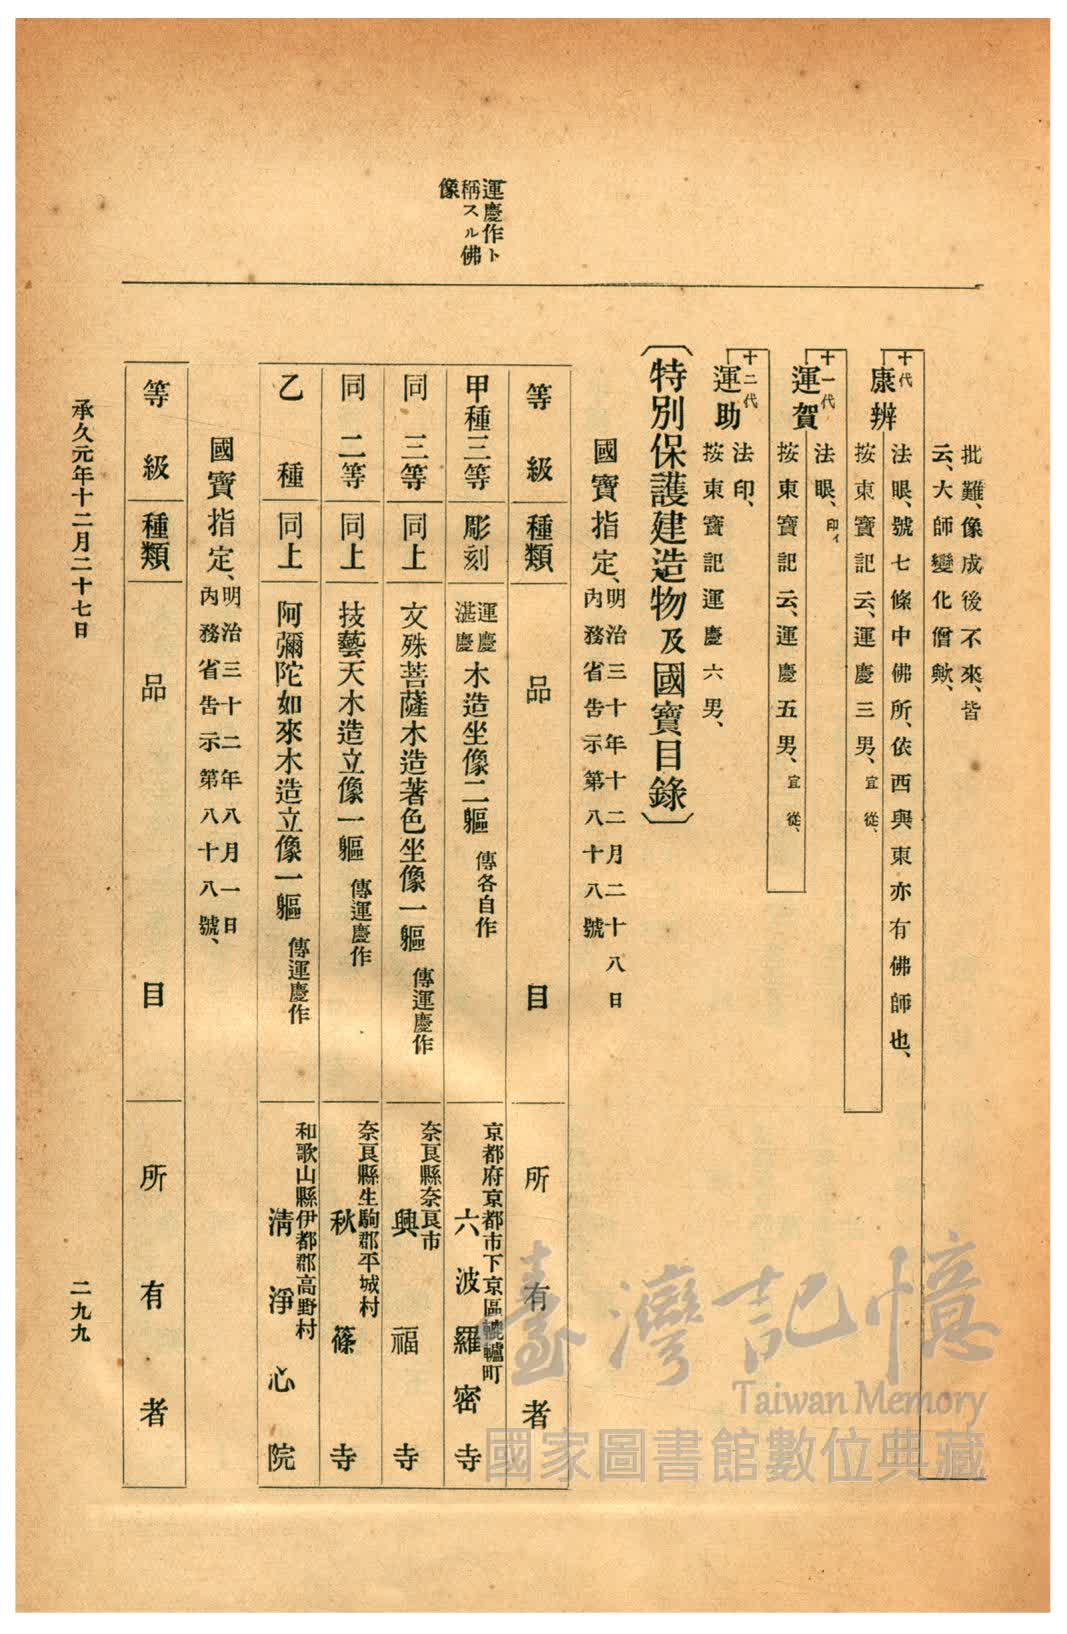 運慶作ト
稱スル佛
像
批難、像成後不來、皆
云、大師變化僧歟、
十代
康辨
法眼、號七條中佛所、依西與東亦有佛師也、
按東寶記云、運慶三男、宜從、
十一代
運賀
法眼、印イ
按東寶記云、運慶五男、宜從、
十二代
運助
法印、
按東寶記運慶六男、
〔特別保護建造物及國寶目錄〕
國寶指定、明治三十年十二月二十八日
內務省告示第八十八號
等級 種類 品目 所有者
甲種三等 彫刻 運慶湛慶木造坐像二軀 傳各自作 京都府京都市下京區轆轤町 六波羅密寺
同三等 同上 文殊菩薩木造著色坐像一軀 傳運慶作 奈良縣奈良市 興福寺
同二等 同上 技藝天木造立像一軀 傳運慶作 奈良縣生駒郡平城村 秋篠寺
乙種 同上 阿彌陀如來木造立像一軀 傳運慶作 和歌山縣伊都郡高野村 淸淨心院
國寶指定、明治三十二年八月一日
內務省告示第八十八號、
等級 種類 品目 所有者
承久元年十二月二十七日
二九九
臺灣記憶
Taiwan Memory
國家圖書館數位典藏